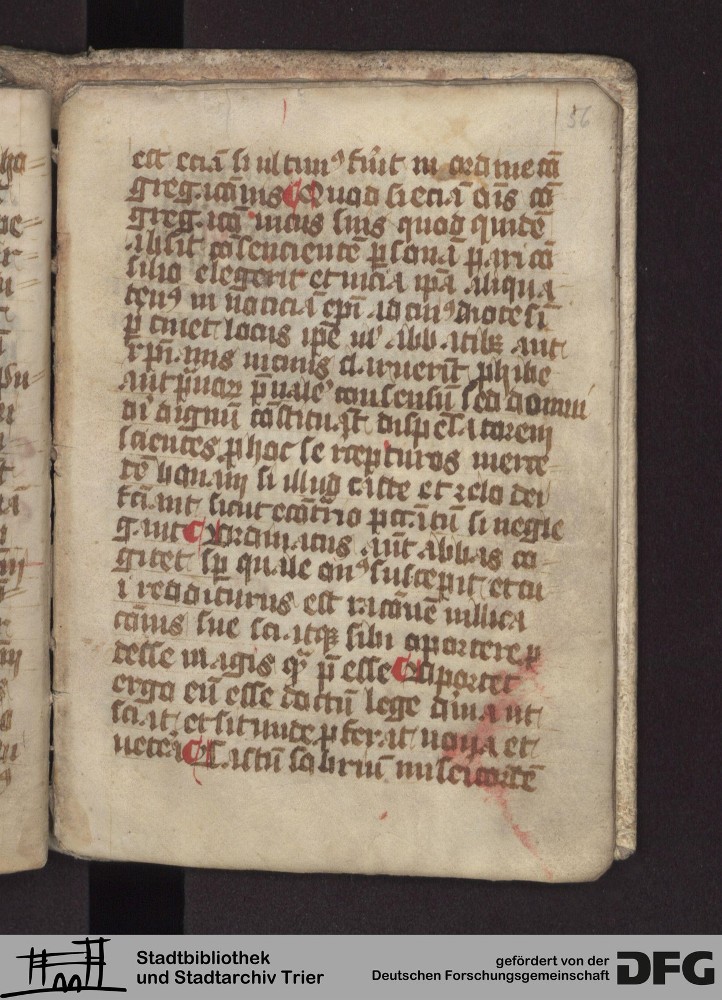 56
est eciā si ultim⁹ fu̕it in ordine cō
gregacōnis Quod si eciā ōis cō
gregacō uicus suis quod quidē
absit cōsencientē ꝑsonā pari cō
silio elegerit et uicia ip̄a aliqua
ten⁹ in noticiā ep̄i ad cui⁹ diocesī
ꝑtinet locus ip̄e ul̕ abbatibꝫ aut
xp̄ianis uicinis claruerūt ꝓhibe
ant prauorū p̄uale̕ consensū sed domui
di̕ dignū cōstituāt dispēsatorem
scientes ꝓ hoc se recepturos merce
dē bonam si illud caste et zelo dei
faciant sicut econtͣrio peccatū si negle
gant Ordinatus aūt abbas co
gitet sp̄ quale on⁹ suscepit et cu
i redditurus est racōnē uillica
cōnis sue sciatqꝫ sibi oportere ꝓ
desse magis qͣ p̄esse Oportet
ergo eū esse doctū lege diuina ut
sciat et sit unde ꝓferat noua et
uetera Castū sobriū misericordē
Stadtbibliothek
und Stadtarchiv Trier
gefördert von der
Deutschen Forschungsgemeinschaft
DFG